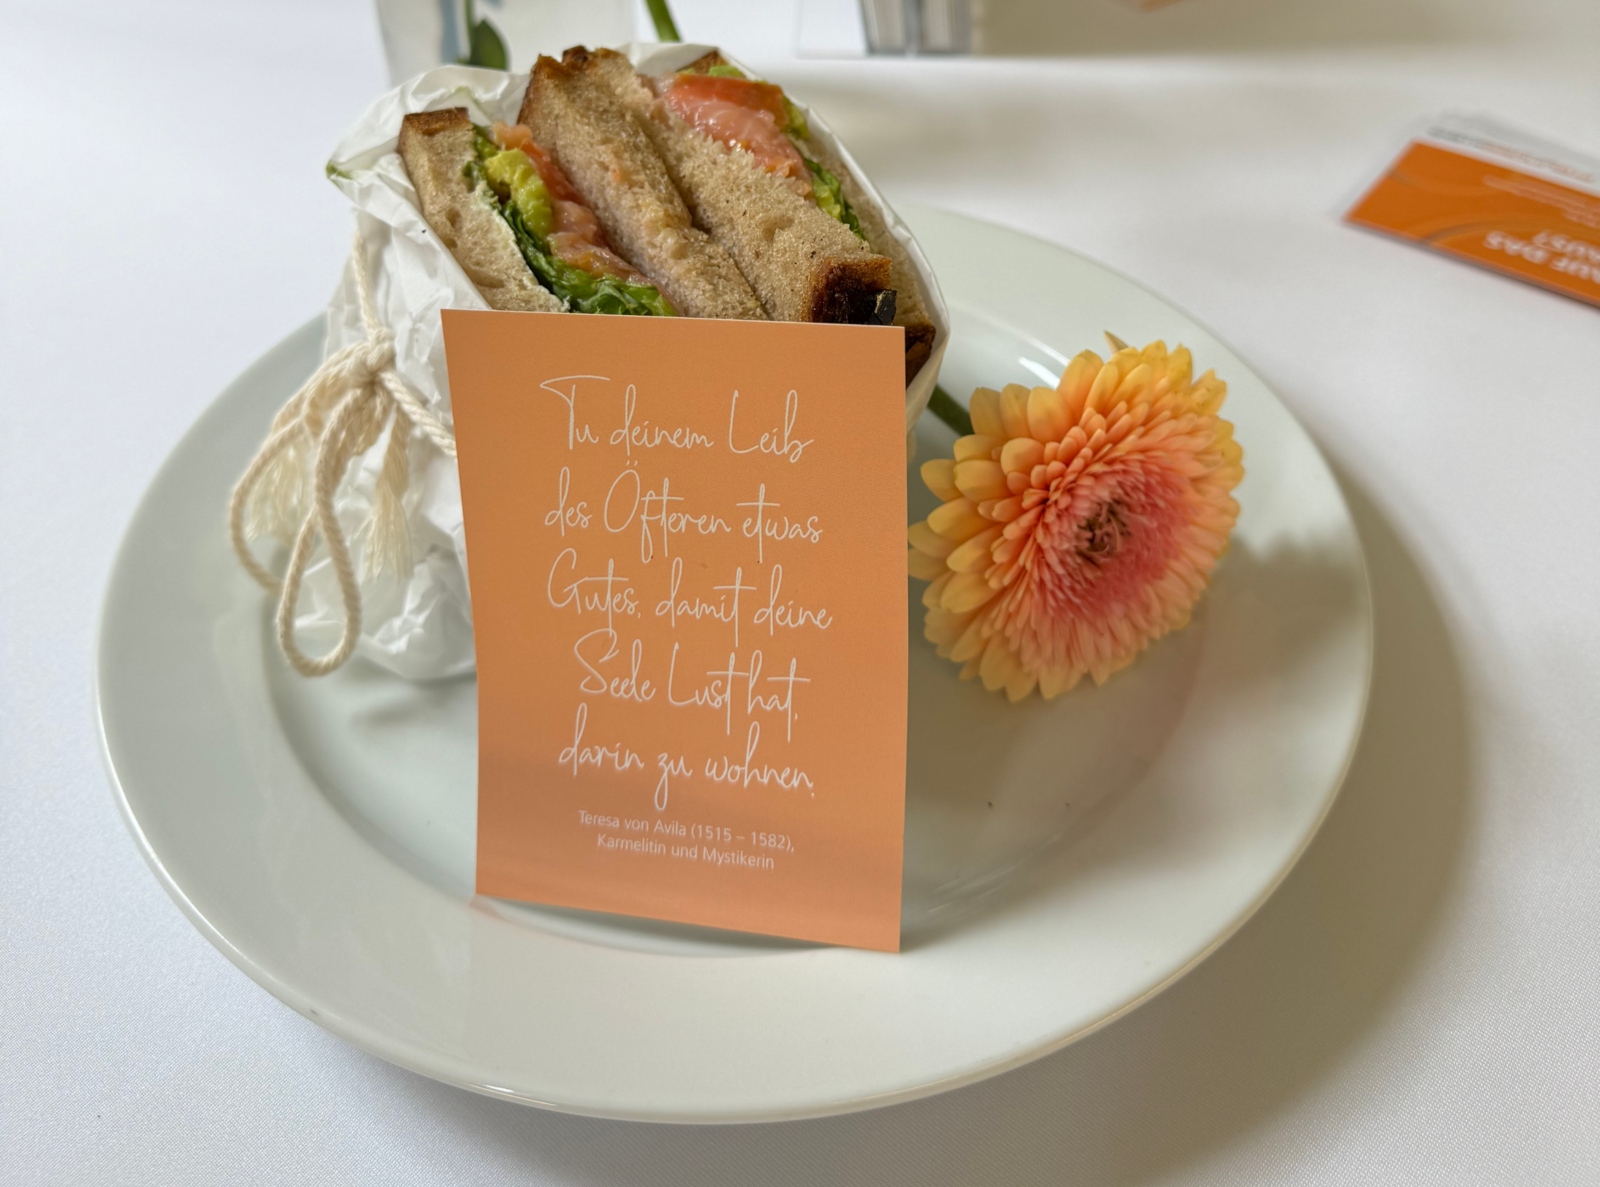 Tu deinem Leib
des Öfteren etwas
Gutes, damit deine
Seele Lust hat,
darin zu wohnen.
Teresa von Avila (1515 – 1582),
Karmelitin und Mystikerin
AUF DAS